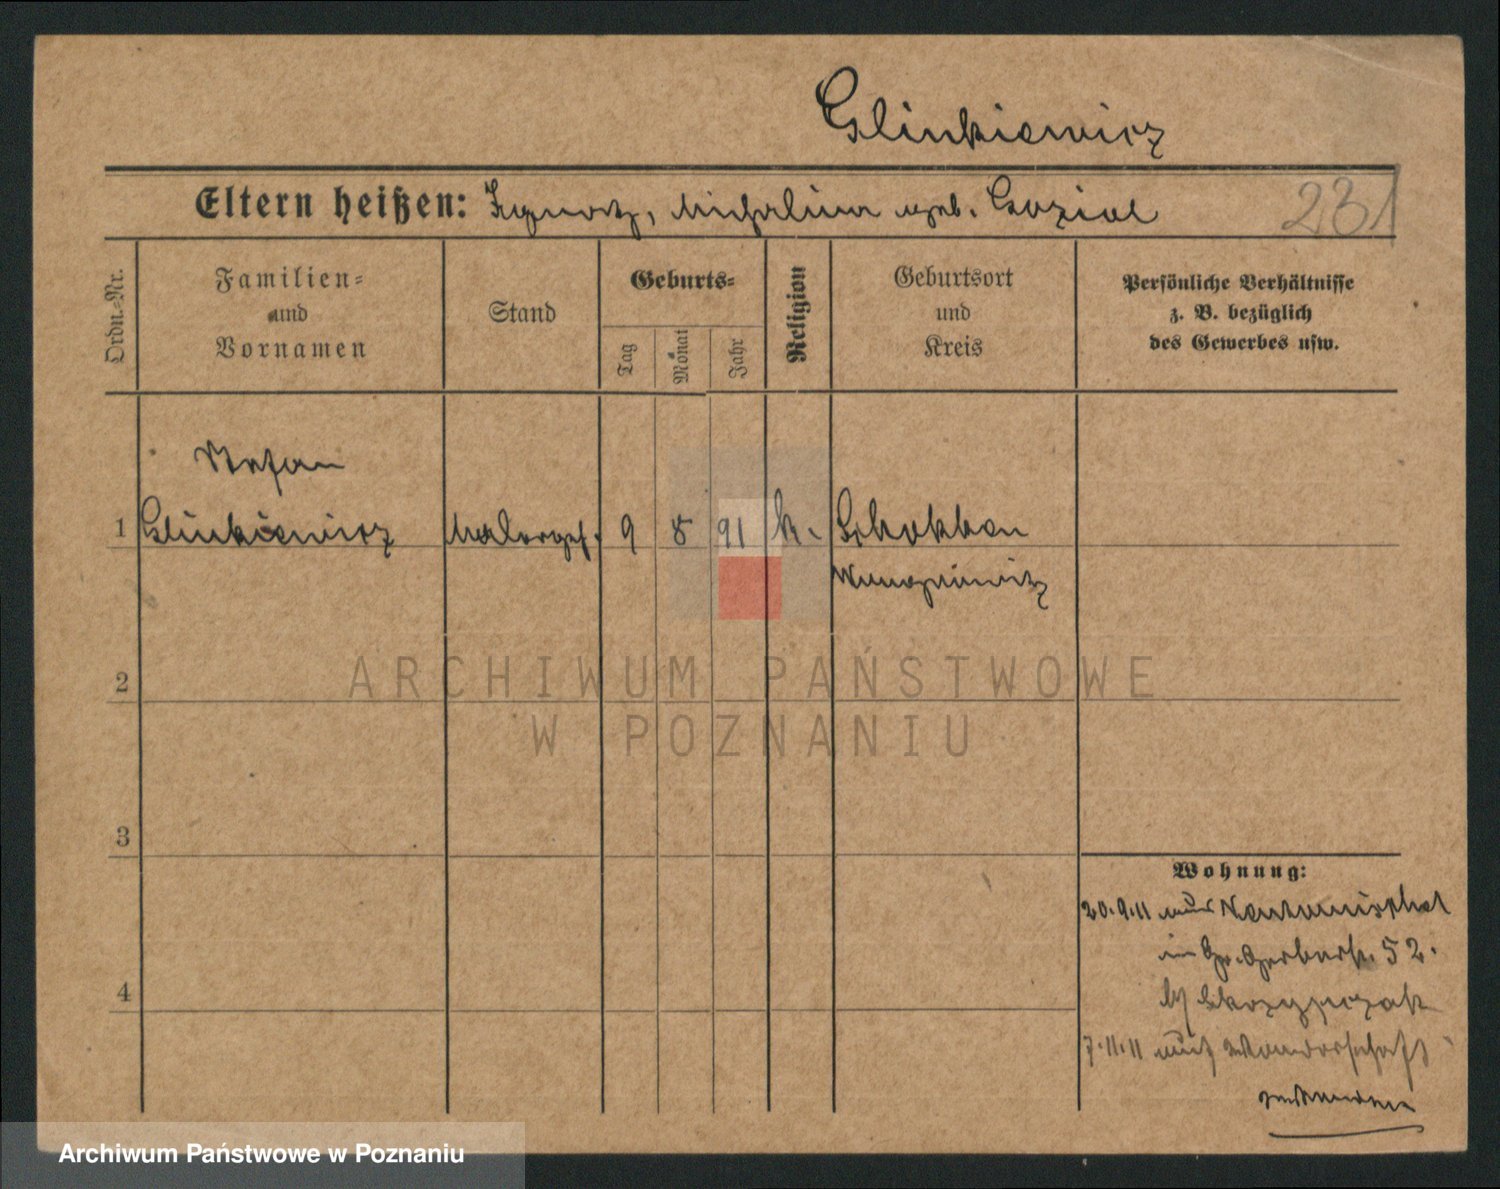 Glinkiewicz
Eltern heißen: Ignatz, Michalina geb. Goziol
231
Ordn.-Nr.
Familien-
und
Vornamen
Stand
Geburts-
Tag
Monat
Jahr
Religion
Geburtsort
und
Kreis
Persönliche Verhältnisse
z. B. bezüglich
des Gewerbes usw.
Stefan
1 Glinkiewicz Malergeh. 9 8 91 k. Schokken
Wongrowitz
ARCHIWUM PAŃSTWOWE
W POZNANIU
2
3
4
Wohnung:
20.9.11 aus Neutomischel
in Gr. Gerberstr. 52.
b/
7.11.11 auf Wanderschaft
Archiwum Państwowe w Poznaniu